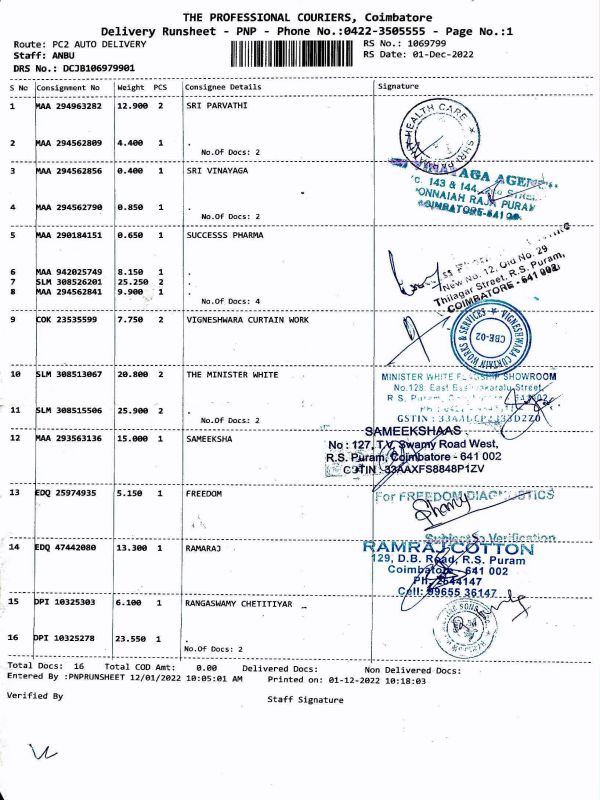 THE PROFESSIONAL COURIERS, Coimbatore
Delivery Runsheet - PNP - Phone No.:0422-3505555 - Page No.:1
Route: PC2 AUTO DELIVERY
RS No.: 1069799
Staff: ANBU
RS Date: 01-Dec-2022
DRS No.: DCJB106979901
S No Consignment No Weight PCS Consignee Details Signature
1 MAA 294963282 12.900 2 SRI PARVATHI
HEALTH CARE
2 MAA 294562809 4.400 1 .
No.Of Docs: 2
3 MAA 294562856 0.400 1 SRI VINAYAGA
143 & 144
RAJA PURAM
COIMBATORE-641
4 MAA 294562790 0.850 1 .
No.Of Docs: 2
5 MAA 290184151 0.650 1 SUCCESSS PHARMA
New No. 12, Old No. 29
Thilagar Street, R.S. Puram,
COIMBATORE - 641 002
6 MAA 942025749 8.150 1
7 SLM 308526201 25.250 2
8 MAA 294562841 9.900 1 .
No.Of Docs: 4
9 COK 23535599 7.750 2 VIGNESHWARA CURTAIN WORK
VIGNESHWARA CURTAIN WORKS & SERVICES
CBE-02
10 SLM 308513067 20.800 2 THE MINISTER WHITE
MINISTER WHITE SHOWROOM
No.128, East Street,
R.S.
11 SLM 308515506 25.900 2 .
No.Of Docs: 2
GSTIN :
12 MAA 293563136 15.000 1 SAMEEKSHA
SAMEEKSHAAS
No : 127, T.V. Swamy Road West,
R.S. Puram, Coimbatore - 641 002
GSTIN : 33AAXFS8848P1ZV
13 EDQ 25974935 5.150 1 FREEDOM
For FREEDOM DIAGNOSTICS
Subject to Verification
14 EDQ 47442080 13.300 1 RAMARAJ
RAMRAJ COTTON
129, D.B. Road, R.S. Puram
Coimbatore - 641 002
Ph: 2544147
Cell: 99655 36147
15 DPI 10325303 6.100 1 RANGASWAMY CHETITIYAR
16 DPI 10325278 23.550 1 .
No.Of Docs: 2
Total Docs: 16 Total COD Amt: 0.00 Delivered Docs: Non Delivered Docs:
Entered By :PNPRUNSHEET 12/01/2022 10:05:01 AM Printed on: 01-12-2022 10:18:03
Verified By
Staff Signature